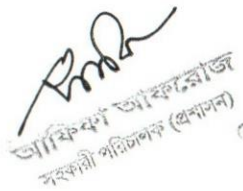 আফিফা আফরোজ
সহকারী পরিচালক (প্রশাসন)